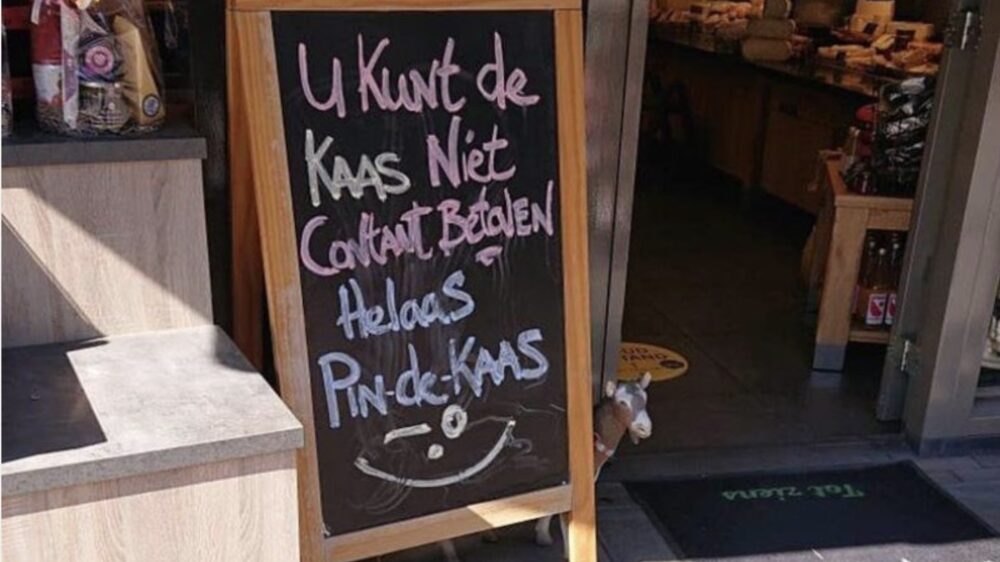 U Kunt de
KAAS Niet
Contant Betalen
Helaas
Pin-de-KAAS
Tot ziens